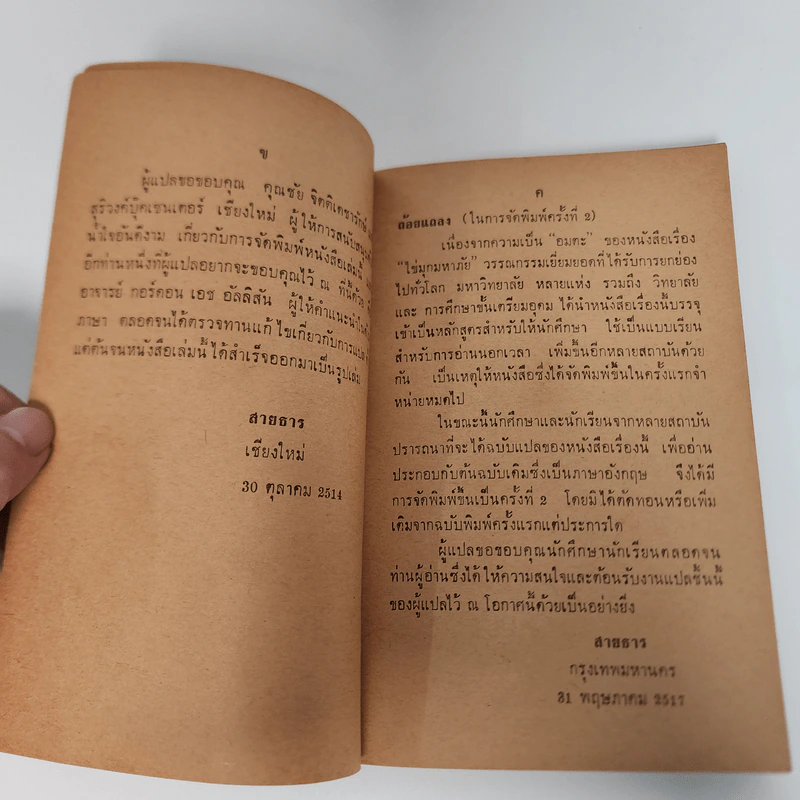 ข
ผู้แปลขอขอบคุณ คุณชัย จิตติเดชารักษ์
สุริวงค์บุ๊คเซนเตอร์ เชียงใหม่ ผู้ให้การสนับสนุน
น้ำใจอันดีงาม เกี่ยวกับการจัดพิมพ์หนังสือเล่มนี้
อีกท่านหนึ่งที่ผู้แปลอยากจะขอบคุณไว้ ณ ที่นี้ด้วย
อาจารย์ กอร์ดอน เอช อัลลิสัน ผู้ให้คำแนะนำใน
ภาษา ตลอดจนได้ตรวจทานแก้ไขเกี่ยวกับการแปล
แต่ต้นจนหนังสือเล่มนี้ได้สำเร็จออกมาเป็นรูปเล่ม
สายธาร
เชียงใหม่
30 ตุลาคม 2514
ค
ถ้อยแถลง (ในการจัดพิมพ์ครั้งที่ 2)
เนื่องจากความเป็น “อมตะ” ของหนังสือเรื่อง
“ไข่มุกมหาภัย” วรรณกรรมเยี่ยมยอดที่ได้รับการยกย่อง
ไปทั่วโลก มหาวิทยาลัย หลายแห่ง รวมถึง วิทยาลัย
และ การศึกษาขั้นเตรียมอุดม ได้นำหนังสือเรื่องนี้บรรจุ
เข้าเป็นหลักสูตรสำหรับให้นักศึกษา ใช้เป็นแบบเรียน
สำหรับการอ่านนอกเวลา เพิ่มขึ้นอีกหลายสถาบันด้วย
กัน เป็นเหตุให้หนังสือซึ่งได้จัดพิมพ์ขึ้นในครั้งแรกจำ
หน่ายหมดไป
ในขณะนี้นักศึกษาและนักเรียนจากหลายสถาบัน
ปรารถนาที่จะได้ฉบับแปลของหนังสือเรื่องนี้ เพื่ออ่าน
ประกอบกับต้นฉบับเดิมซึ่งเป็นภาษาอังกฤษ จึงได้มี
การจัดพิมพ์ขึ้นเป็นครั้งที่ 2 โดยมิได้ตัดทอนหรือเพิ่ม
เติมจากฉบับพิมพ์ครั้งแรกแต่ประการใด
ผู้แปลขอขอบคุณนักศึกษานักเรียนตลอดจน
ท่านผู้อ่านซึ่งได้ให้ความสนใจและต้อนรับงานแปลชิ้นนี้
ของผู้แปลไว้ ณ โอกาสนี้ด้วยเป็นอย่างยิ่ง
สายธาร
กรุงเทพมหานคร
31 พฤษภาคม 2517